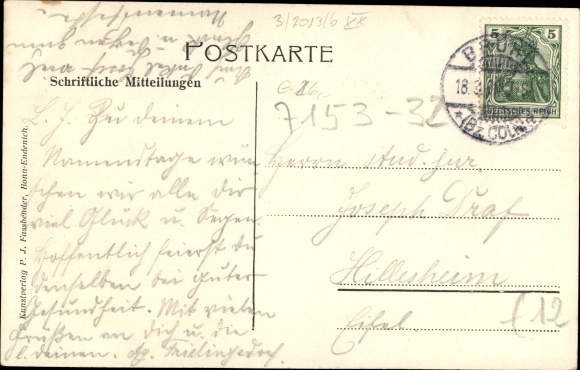 3/2013/6 XX
POSTKARTE
Schriftliche Mitteilungen
5 5
DEUTSCHES REICH
BRÜHL
18.3.
(Bz. CÖLN)
7153-32
L. J. Zu deinem
Namenstage wün
schen wir alle dir
viel Glück u. Segen.
Hoffentlich feierst du
denselben bei guter
Gesundheit. Mit vielen
Grüßen an dich u. die
l. deinen.
Herrn stud. jur.
Joseph Graf
Hillesheim
Eifel
£12
Kunstverlag P. J. Fassbender, Bonn-Endenich.